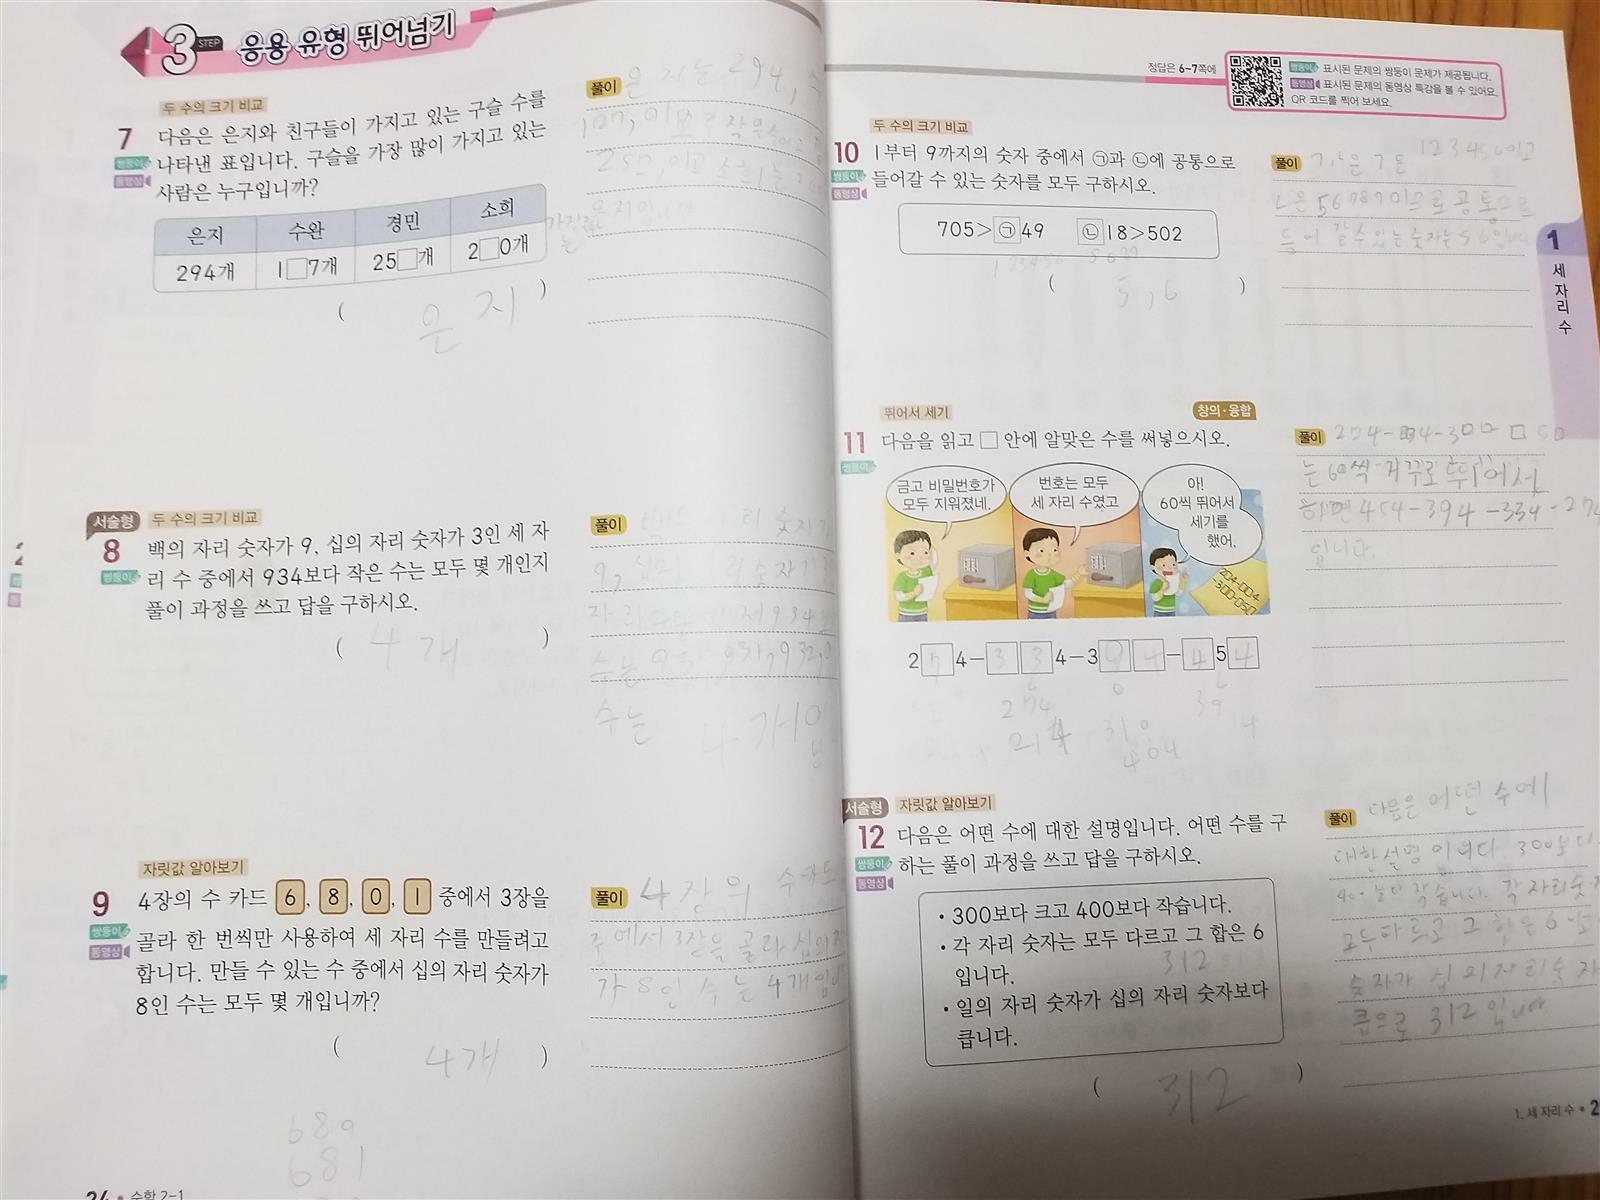 3 STEP 응용 유형 뛰어넘기
두 수의 크기 비교
7 다음은 은지와 친구들이 가지고 있는 구슬 수를
쌍둥이 나타낸 표입니다. 구슬을 가장 많이 가지고 있는
동영상 사람은 누구입니까?
은지 수완 경민 소희
294개 1□7개 25□개 2□0개
( 은지 )
풀이 은지는 294, 수
서술형 두 수의 크기 비교
8 백의 자리 숫자가 9, 십의 자리 숫자가 3인 세 자
쌍둥이 리 수 중에서 934보다 작은 수는 모두 몇 개인지
풀이 과정을 쓰고 답을 구하시오.
( 4개 )
풀이
수는
자릿값 알아보기
9 4장의 수 카드 6, 8, 0, 1 중에서 3장을
쌍둥이 골라 한 번씩만 사용하여 세 자리 수를 만들려고
동영상 합니다. 만들 수 있는 수 중에서 십의 자리 숫자가
8인 수는 모두 몇 개입니까?
( 4개 )
풀이 4장의 수카드
중에서 3장을 골라 십의
가 8인 수는 4개입니
680
681
24 • 수학 2-1
정답은 6-7쪽에
쌍둥이 표시된 문제의 쌍둥이 문제가 제공됩니다.
동영상 표시된 문제의 동영상 특강을 볼 수 있어요.
QR 코드를 찍어 보세요.
두 수의 크기 비교
10 1부터 9까지의 숫자 중에서 ㉠과 ㉡에 공통으로
쌍둥이 들어갈 수 있는 숫자를 모두 구하시오.
동영상
705>㉠49 ㉡18>502
( 5, 6 )
풀이 123456이고
ㄴ은 56789이므로 공통으로
들어 갈 수 있는 숫자는 5 6입니다
1 세 자리 수
뛰어서 세기
창의·융합
11 다음을 읽고 □ 안에 알맞은 수를 써넣으시오.
쌍둥이
금고 비밀번호가
모두 지워졌네.
번호는 모두
세 자리 수였고
아!
60씩 뛰어서
세기를
했어.
2 7 4-3 3 4-3 9 4-4 5 4
274
214
310
404
39
14
풀이
는 60씩 거꾸로 뛰어서
하면 454-394-334-274
입니다.
서술형 자릿값 알아보기
12 다음은 어떤 수에 대한 설명입니다. 어떤 수를 구
쌍둥이 하는 풀이 과정을 쓰고 답을 구하시오.
동영상
• 300보다 크고 400보다 작습니다.
• 각 자리 숫자는 모두 다르고 그 합은 6
입니다.
312
• 일의 자리 숫자가 십의 자리 숫자보다
큽니다.
( 312 )
풀이 다음은 어떤 수에
대한 설명입니다. 300보다
작습니다. 각 자리숫자
모두 다르고 그 합은 6
숫자가 십의 자리 숫자
큼으로 312입니다
1. 세 자리 수 • 2